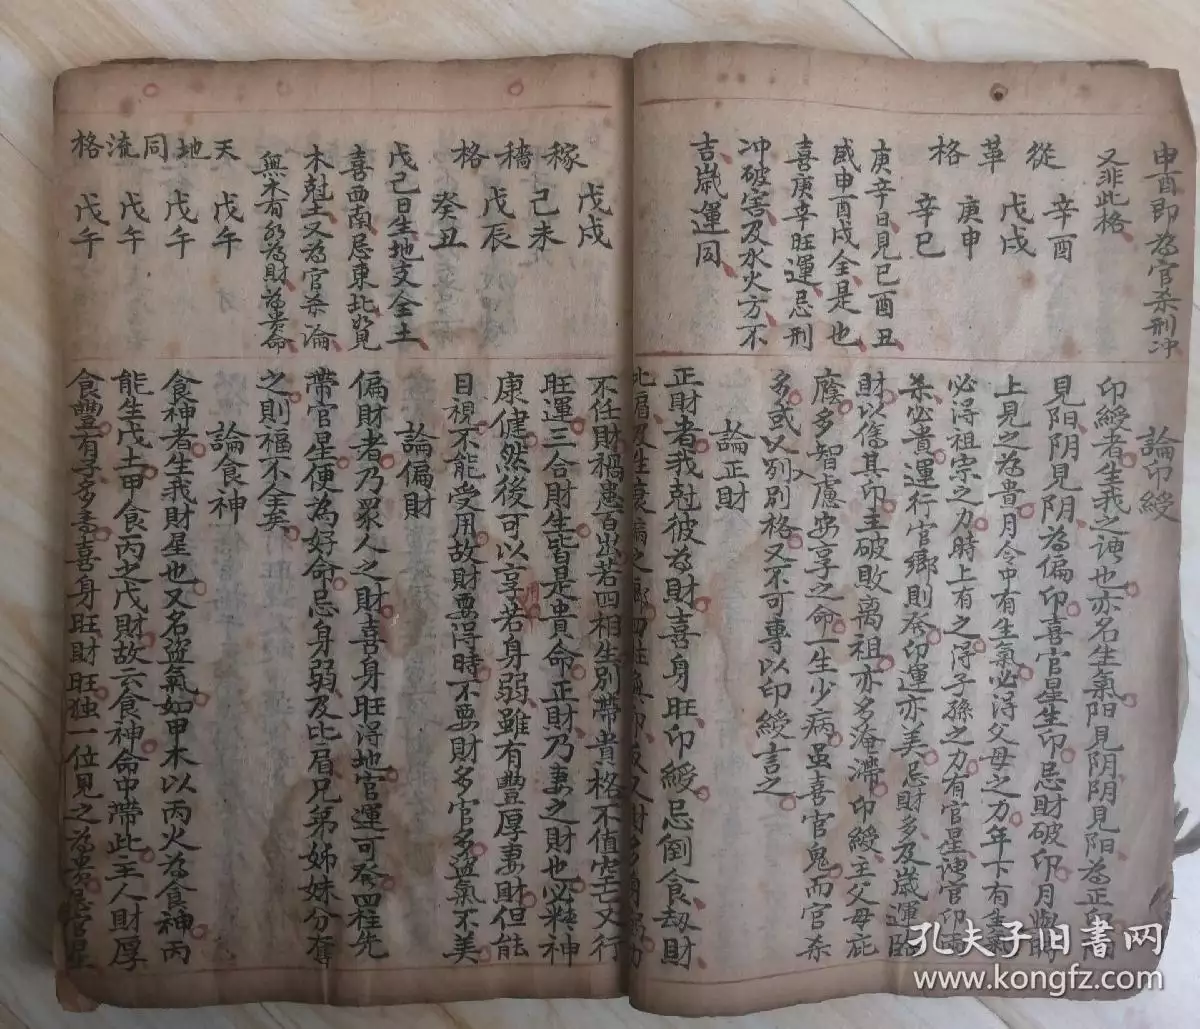 申酉即為官杀刑冲
又非此格
從革格
辛酉
戊戌
庚申
辛巳
庚辛日見巳酉丑
或申酉戌全是也
喜庚辛旺運忌刑
冲破害及水火方不
吉歲運同
論印綬
印綬者生我之神也亦名生氣阳見阴阴見阳為正印阳
見阳阴見阴為偏印喜官星生印忌財破印月與時
上見之為貴月令中有生氣必得父母之力年下有生氣
必得祖宗之力時上有之得子孫之力有官星謂官印
杀必貴運行官鄉則發印運亦美忌財多及歲運臨
財以傷其印主破敗离祖亦多淹滯印綬主父母庇
廕多智慮安享之命一生少病虽喜官鬼而官杀
多或入別格又不可專以印綬言之
論正財
正財者我尅彼為財喜身旺印綬忌倒食劫財
稼穡格
戊戌
己未
戊辰
癸丑
戊己日生地支全土
喜西南忌東北如見
木尅土又為官杀論
無木有水為財為貴命
天地同流格
戊午
戊午
戊午
戊午
不任財禍患百出若四相生別帶貴格不值空亡又行
旺運三合財生皆是貴命正財乃妻之財也必精神
康健然後可以享若身弱雖有豐厚妻財但能
目視不能受用故財要得時不要財多官多盜氣不美
論偏財
偏財者乃眾人之財喜身旺得地官運可發四柱先
帶官星便為好命忌身弱及比肩兄弟姊妹分奪
之則福不全矣
論食神
食神者生我財星也又名盜氣如甲木以丙火為食神丙
能生戊土甲食丙之戊財故云食神命中帶此主人財厚
食豐有子多喜身旺財旺独一位見之為貴忌官星
孔夫子旧书网
www.kongfz.com